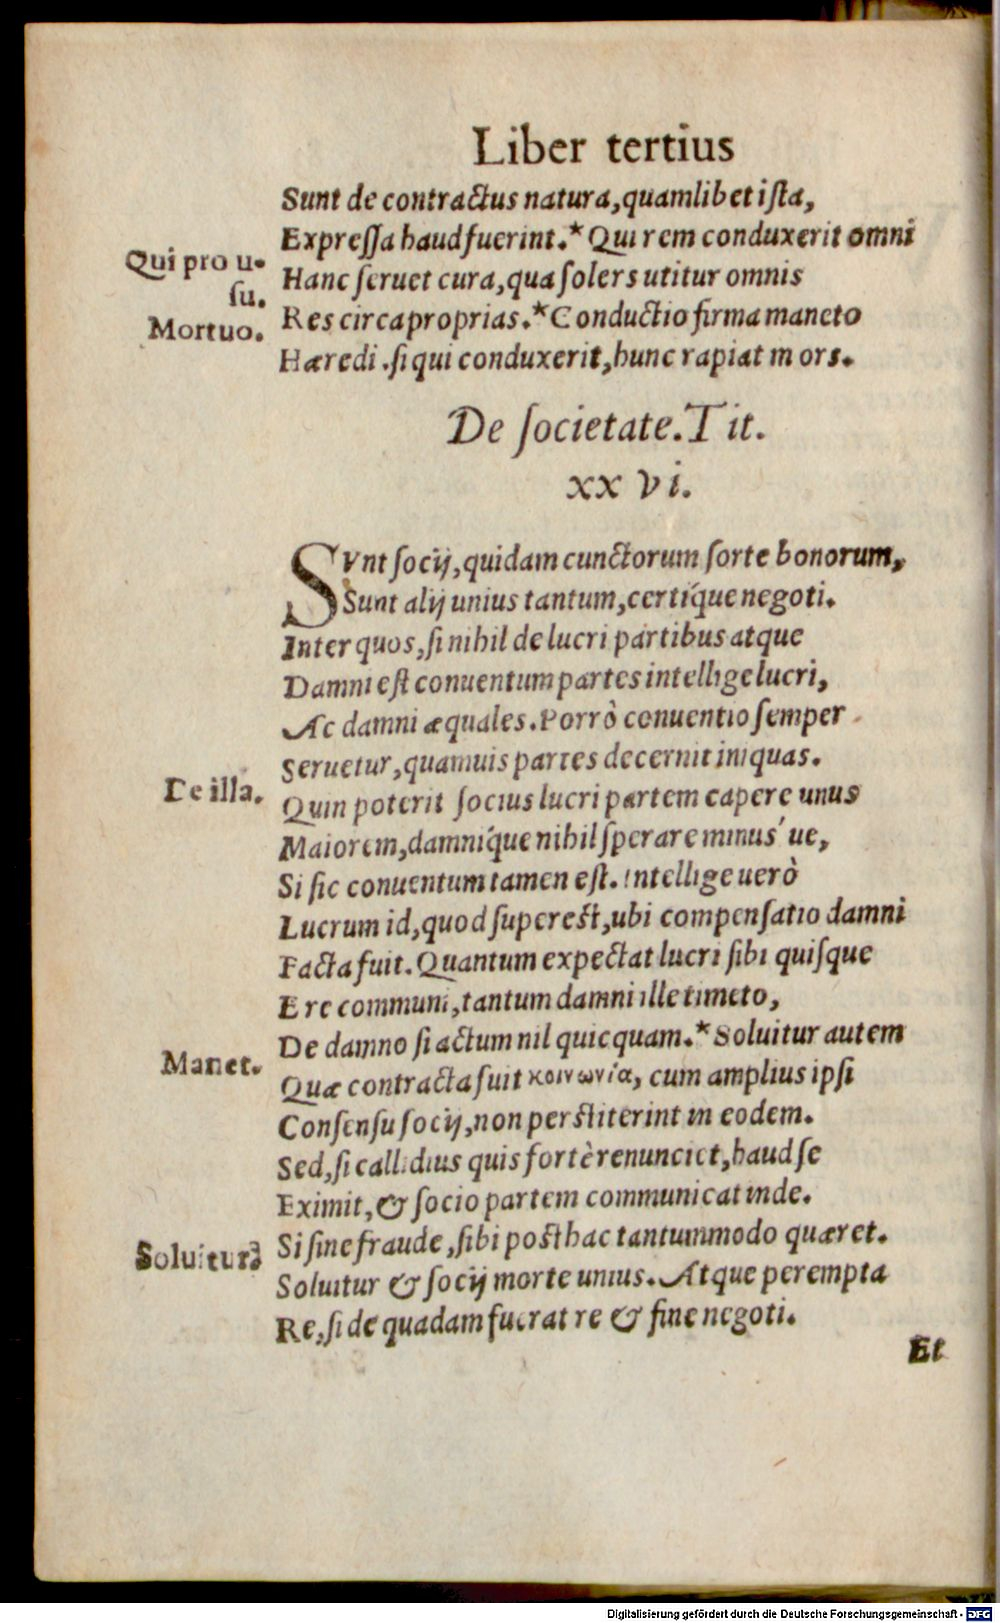 Liber tertius
Sunt de contractus natura, quamlibet ista,
Expressa haud fuerint.* Qui rem conduxerit omni
Qui pro u-
su.
Hanc seruet cura, qua solers utitur omnis
Mortuo.
Res circa proprias.* Conductio firma maneto
Hæredi. si qui conduxerit, hunc rapiat mors.
De societate. Tit.
xx vi.
SVnt socij, quidam cunctorum sorte bonorum,
Sunt alij unius tantum, certíque negoti.
Inter quos, si nihil de lucri partibus atque
Damni est conuentum partes intellige lucri,
Ac damni æquales. Porrò conuentio semper
Seruetur, quamuis partes decernit iniquas.
De illa.
Quin poterit socius lucri partem capere unus
Maiorem, damníque nihil sperare minus' ue,
Si sic conuentum tamen est. Intellige uerò
Lucrum id, quod superest, ubi compensatio damni
Facta fuit. Quantum expectat lucri sibi quisque
E re communi, tantum damni ille timeto,
De damno si actum nil quicquam.* Soluitur autem
Manet.
Quæ contracta fuit κοινωνία, cum amplius ipsi
Consensu socij, non perstiterint in eodem.
Sed, si callidius quis fortè renunciet, haud se
Eximit, & socio partem communicat inde.
Soluitur
Si sine fraude, sibi posthac tantummodo quæret.
Soluitur & socij morte unius. Atque perempta
Re, si de quadam fuerat re & fine negoti.
Et
Digitalisierung gefördert durch die Deutsche Forschungsgemeinschaft - DFG